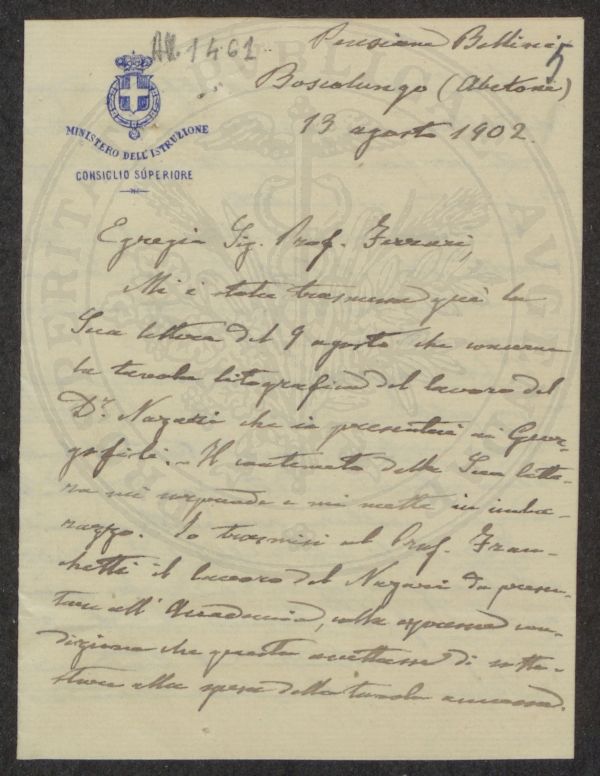 AR. 1461
5
Pensione Bellini
Boscolungo (Abetone)
13 agosto 1902.
MINISTERO DELL'ISTRUZIONE
CONSIGLIO SUPERIORE
Egregio Sig. Prof. Ferrari,
Mi è stata trasmessa quà la
Sua lettera del 9 agosto che concerne
la tavola litografica del lavoro del
Dr. Nazari che io presentai ai Geor-
gofili. Il contenuto della Sua lette-
ra mi sorprende e mi mette in imba-
razzo. Io trasmisi al Prof. Fran-
chetti il lavoro del Nazari da presen-
tare all'Accademia, colla espressa con-
dizione che questa accettasse di sotto-
stare alla spesa della tavola annessa.